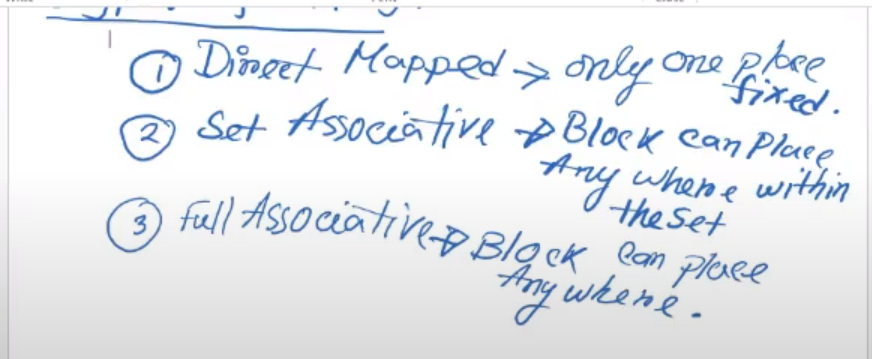 ① Direct Mapped → only one place
fixed.
② Set Associative → Block can Place
Any where within
the set
③ Full Associative → Block can place
Any where.